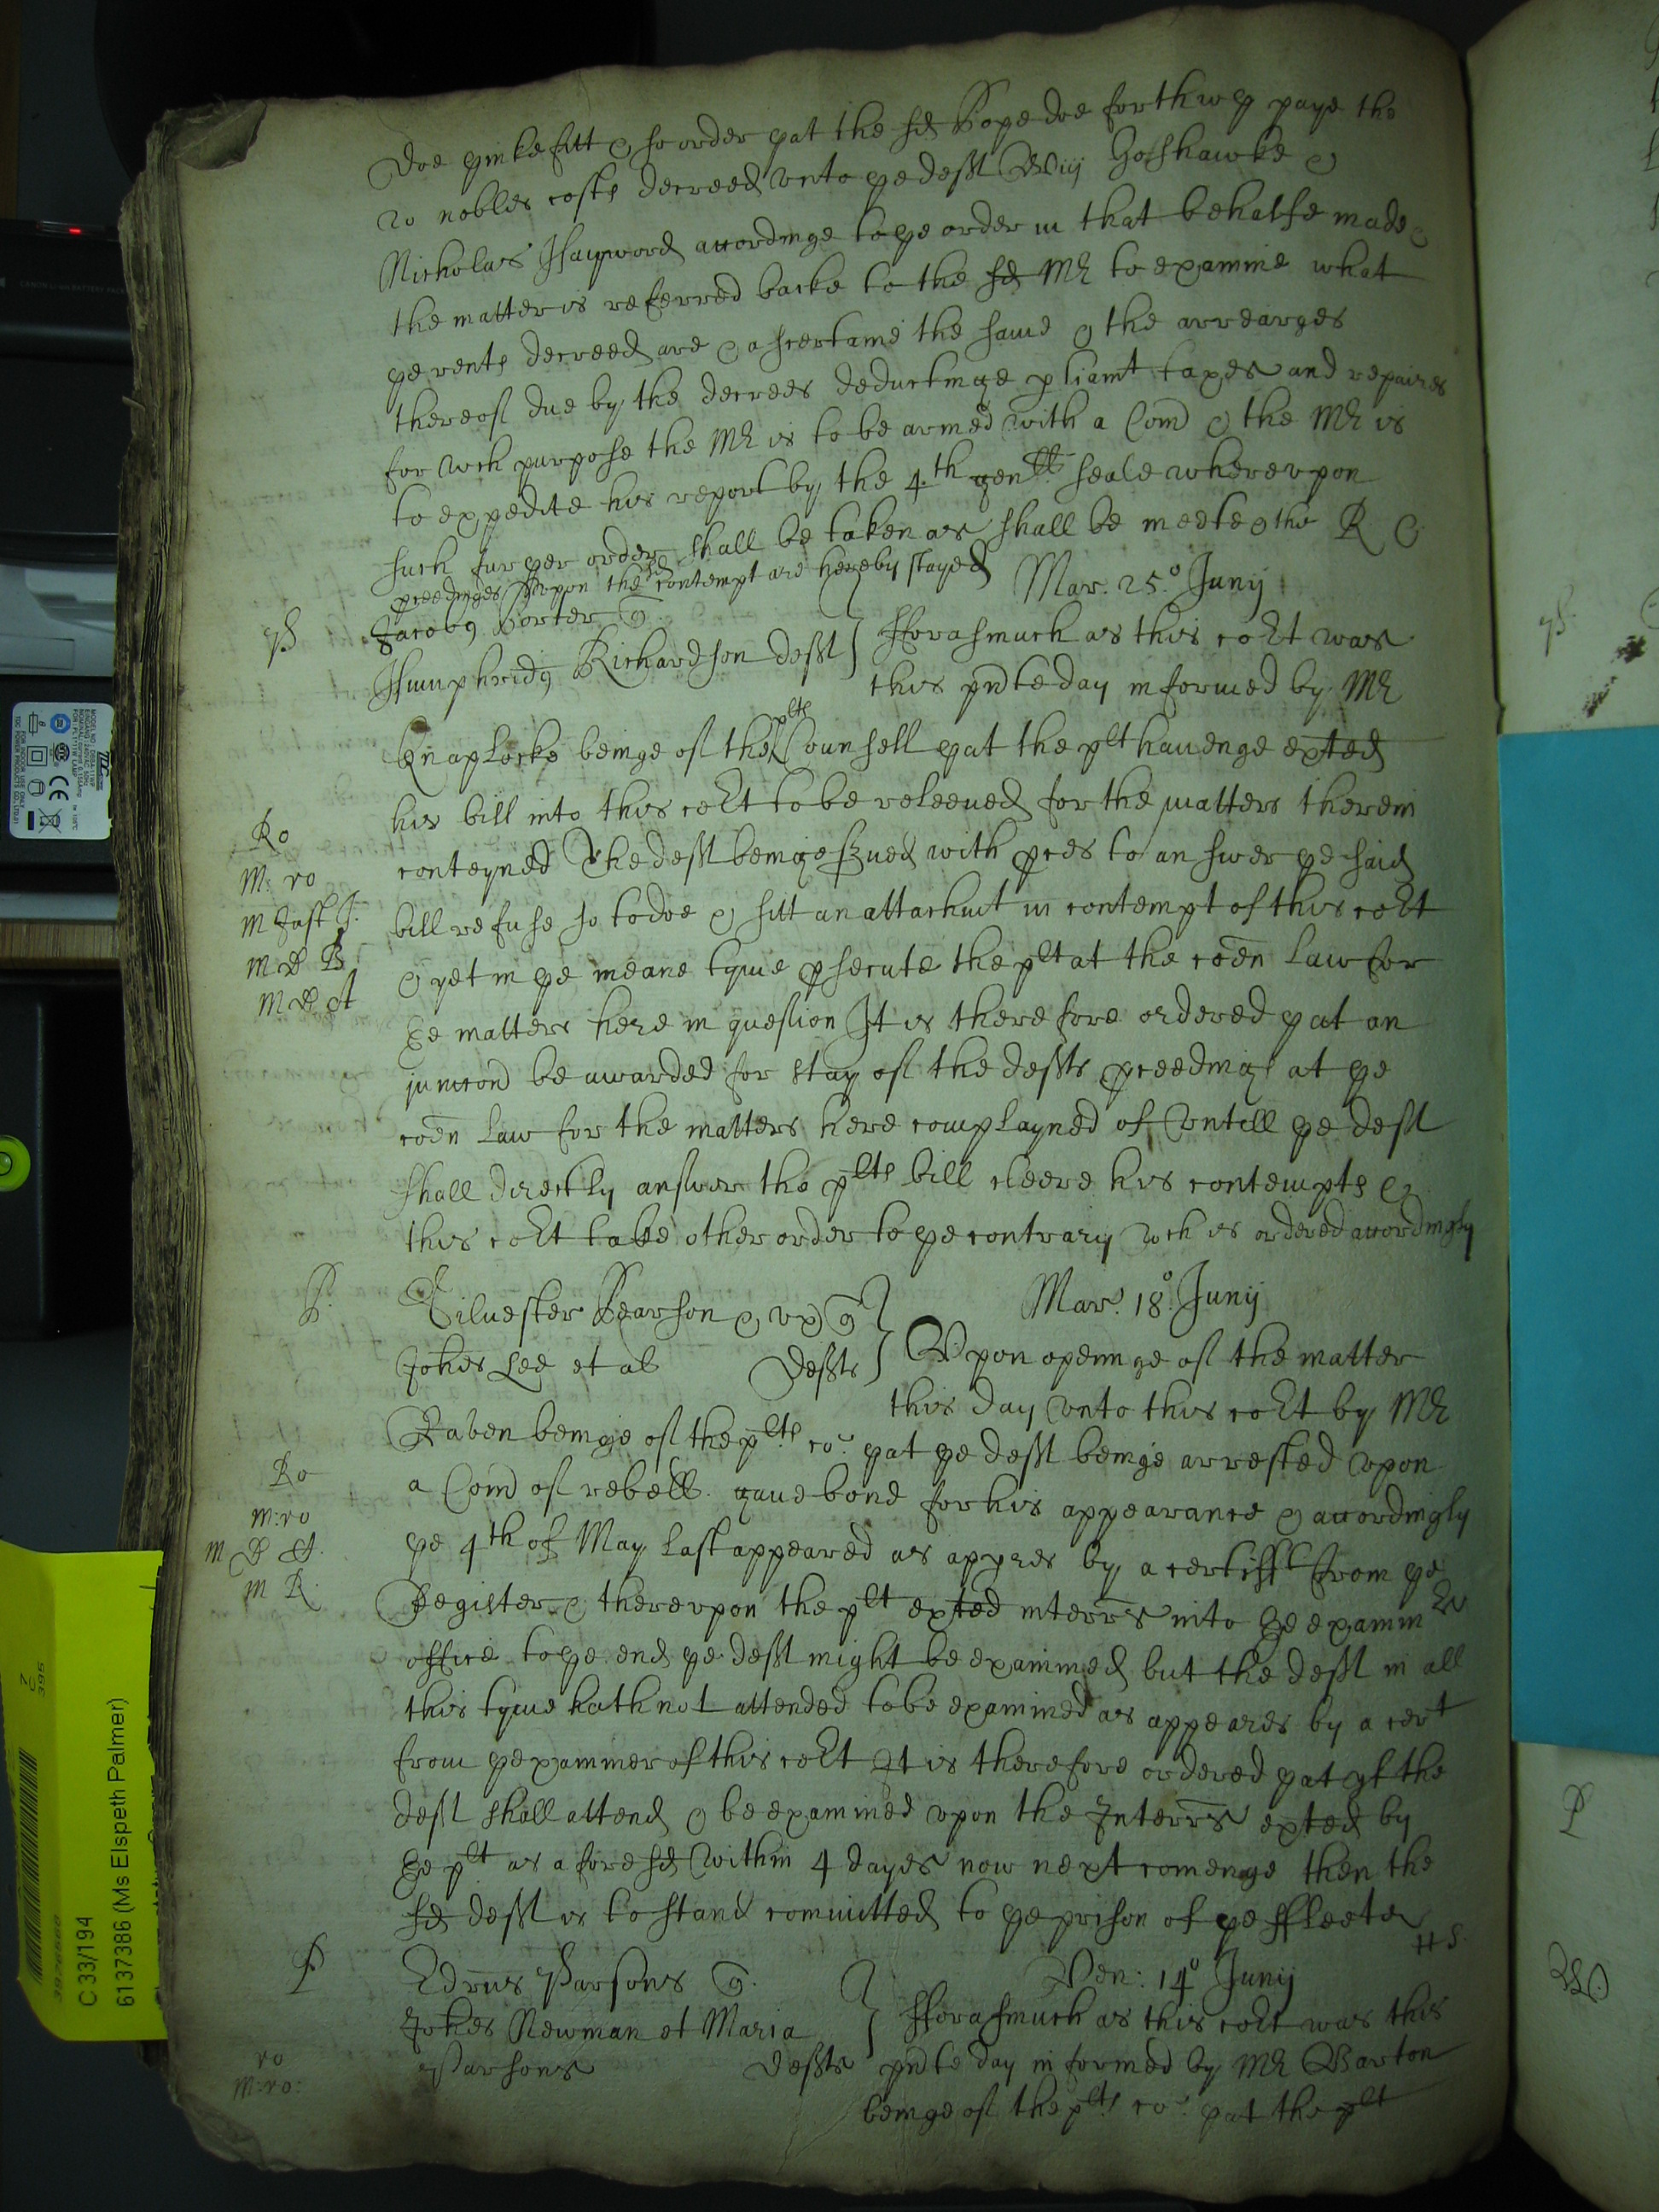 doe thinke fitt & so order that the sd Pope doe forthwth paye the
20 nobles costs decreed vnto the deft Willm Goshawke &
Nicholas Hayword accordinge to the order in that behalfe made &
the matter is referred backe to the sd Mr to examine what
the rents decreed are & ascertaine the same & the arrearges
thereof due by the decrees deductinge pliamt taxes and repaires
for wch purpose the Mr is to be armed with a Comn & the Mr is
to expedite his report by the 4.th genll seale wherevpon
such further order shall be taken as shall be meete & the R
pceedinges vpon the sd contempt are hereby stayed
Mar. 25.o Junij
Jacobus Porter q
Humphridus Richardson deft } Fforasmuch as this cort was
this pnte day informed by Mr
Knaplocke beinge of the plts Counsell that the plt hauenge exted
his bill into this cort to be releeued for the matters therein
conteyned The deft beinge serued with pces to answer the said
bill refuse so to doe & sitt an attachmt in contempt of this cort
& yet in the meane tyme psecute the plt at the coen law for
the matters here in question It is therefore ordered that an
iunccon be awarded for stay of the defts pceedings at the
coen law for the matters here complayned of vntill the deft
shall directly answer the plts bill cleere his contempts &
this cort take other order to the contrary wch is ordered accordingly
Mar. 18.o Junij
P.
Siluester Pearson & vx q }
Johes Lee et al defts } Vpon openinge of the matter
this day vnto this cort by Mr
Raben beinge of the plts co: that the deft beinge arrested vpon
a Comn of rebell. gaue bond for his appearance & accordingly
the 4th of May last appeared as appres by a certifft from the
Register & therevpon the plt exted interrs into the examinrs
office to the end the deft might be examined but the deft in all
this tyme hath not attended to be examined as appeares by a cert
from the examiner of this cort It is therefore ordered that yf the
deft shall attend & be examined vpon the Interrs exted by
the plt as aforesd within 4 dayes now next comenge then the
sd deft is to stand committed to the prison of the ffleete
HS.
P
Edrus Parsons q. Ven: 14o Junij
Johes Newman et Maria } Fforasmuch as this cort was this
Parsons defts pnte day informed by Mr Barton
beinge of the plts co: that the plt
Ro
M: ro
Ro
M: ro
M R.
ro
M: ro:
C 33/194
6137386 (Ms Elspeth Palmer)